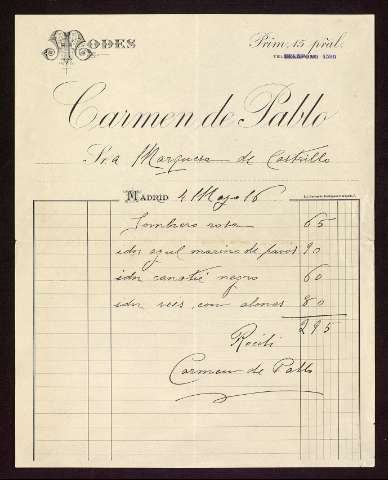 MODES
Prim, 15 pral.
TELEFONO
Carmen de Pablo
Sra Marquesa de Castrillo
MADRID 4 Mayo 16
Sombrero rosa 65
idm azul marino de 90
idm canotié negro 60
idm con alones 80
295
Recibi
Carmen de Pablo